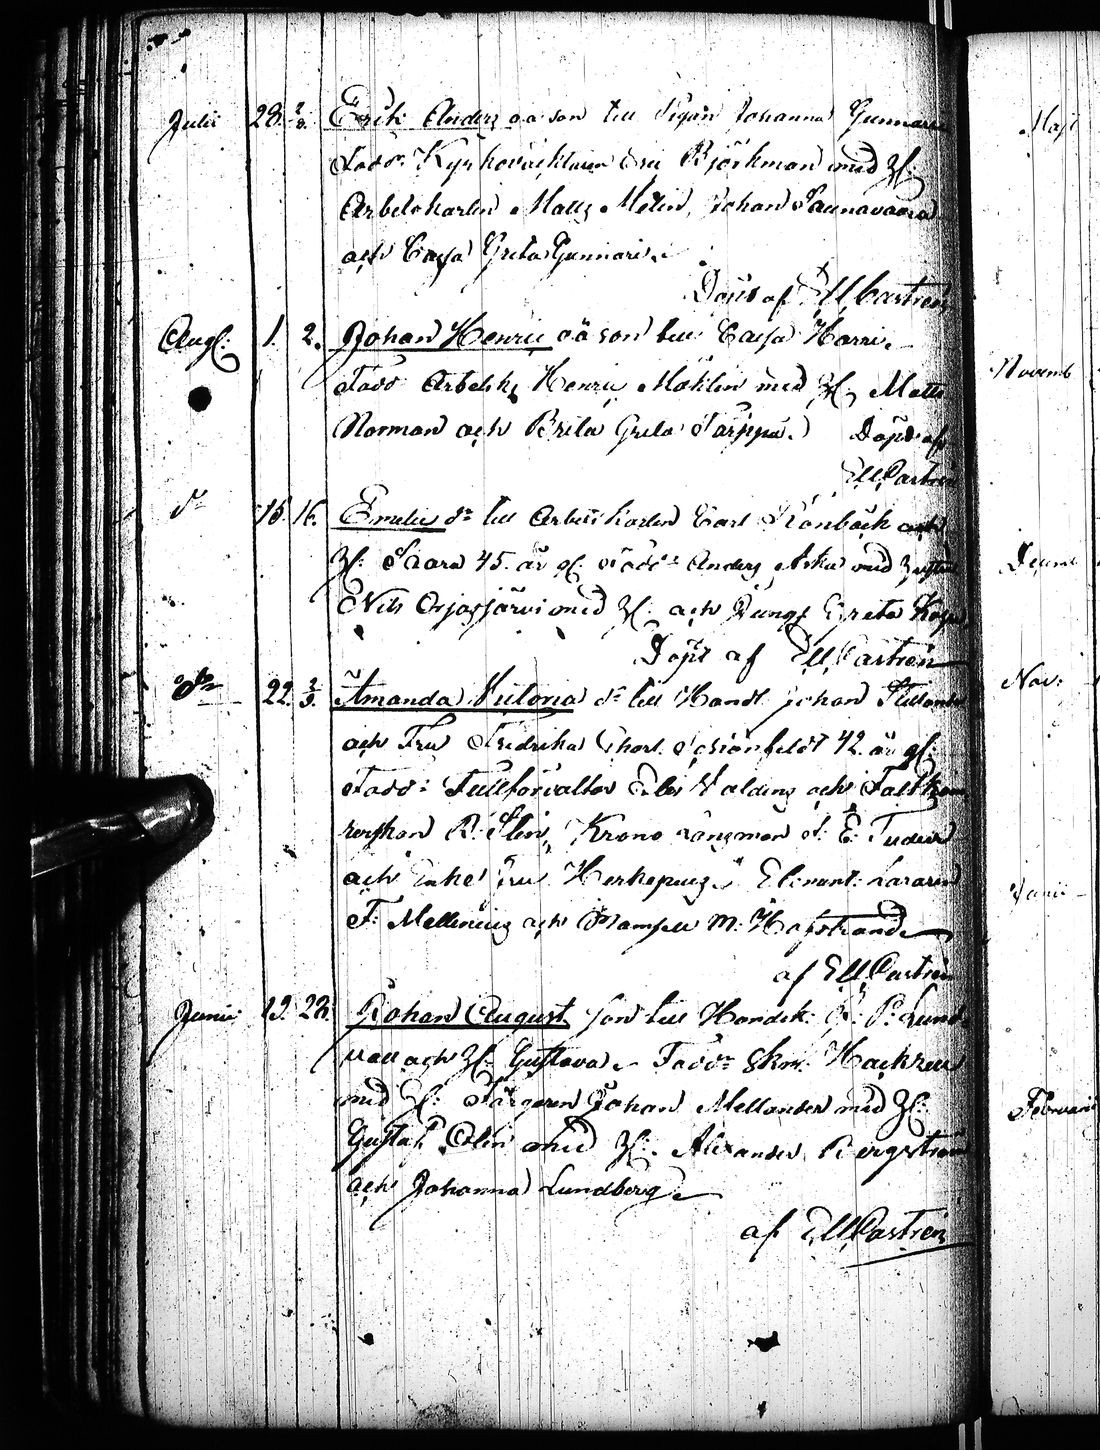 Julii 28. 2/8. Erik Anders oä son till Pigan Johanna Gunnari
Fadd: Kyrkoväcktaren Eric Björkman med H:
Arbetskarlen Matts Melin, Johan Saunavaara
och Cajsa Greta Gunnari.
Döpt af E M Castrén
Aug: 1. 2. Johan Henric oä son till Cajsa Harri.
Fadd Arbetsk Henric Möklin med H, Matts
Norman och Brita Greta Döpt af
E M Castrén
do 15. 16. Emelie dr till Arbetskarlen Carl Rönbäck och
H: Saara 45. år gl: Fadd: Anders Asku med
Nils Orjasjärvi med H: och Jungf Greta
Döpt af E M Castrén
do 22. 2/9. Amanda Victoria dr till Handl. Johan
och Fru Fredrika Charl. 42. år gl.
Fadd: Tullförvaltar och
R: Stein, Krono Länsman E: Tudeer
och Enke Fru Element: Läraren
F. Mellenius och Mamsell M: Hafstrand
af E M Castrén
Junii 19. 28. Johan August son till Handsk. P. Lund
vall och H: Gustava. Fadd: Skm:
med H: Färgaren Johan Mellander med H:
Gustaf Ohlin med H:. Alexander Bergström
och Johanna Lundberg
af E M Castrén
Maji
Novemb
Decemb
Nov:
Junii
Februarii